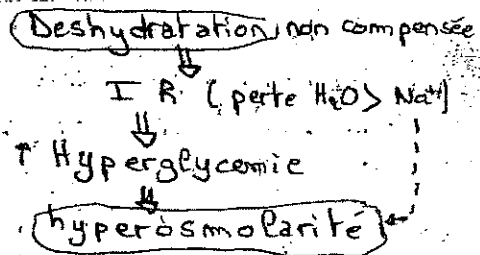 Deshydratation non compensée
⇓
I R ( perte H₂O > Na⁺)
⇓
↑ Hyperglycemie
⇓
hyperosmolarité